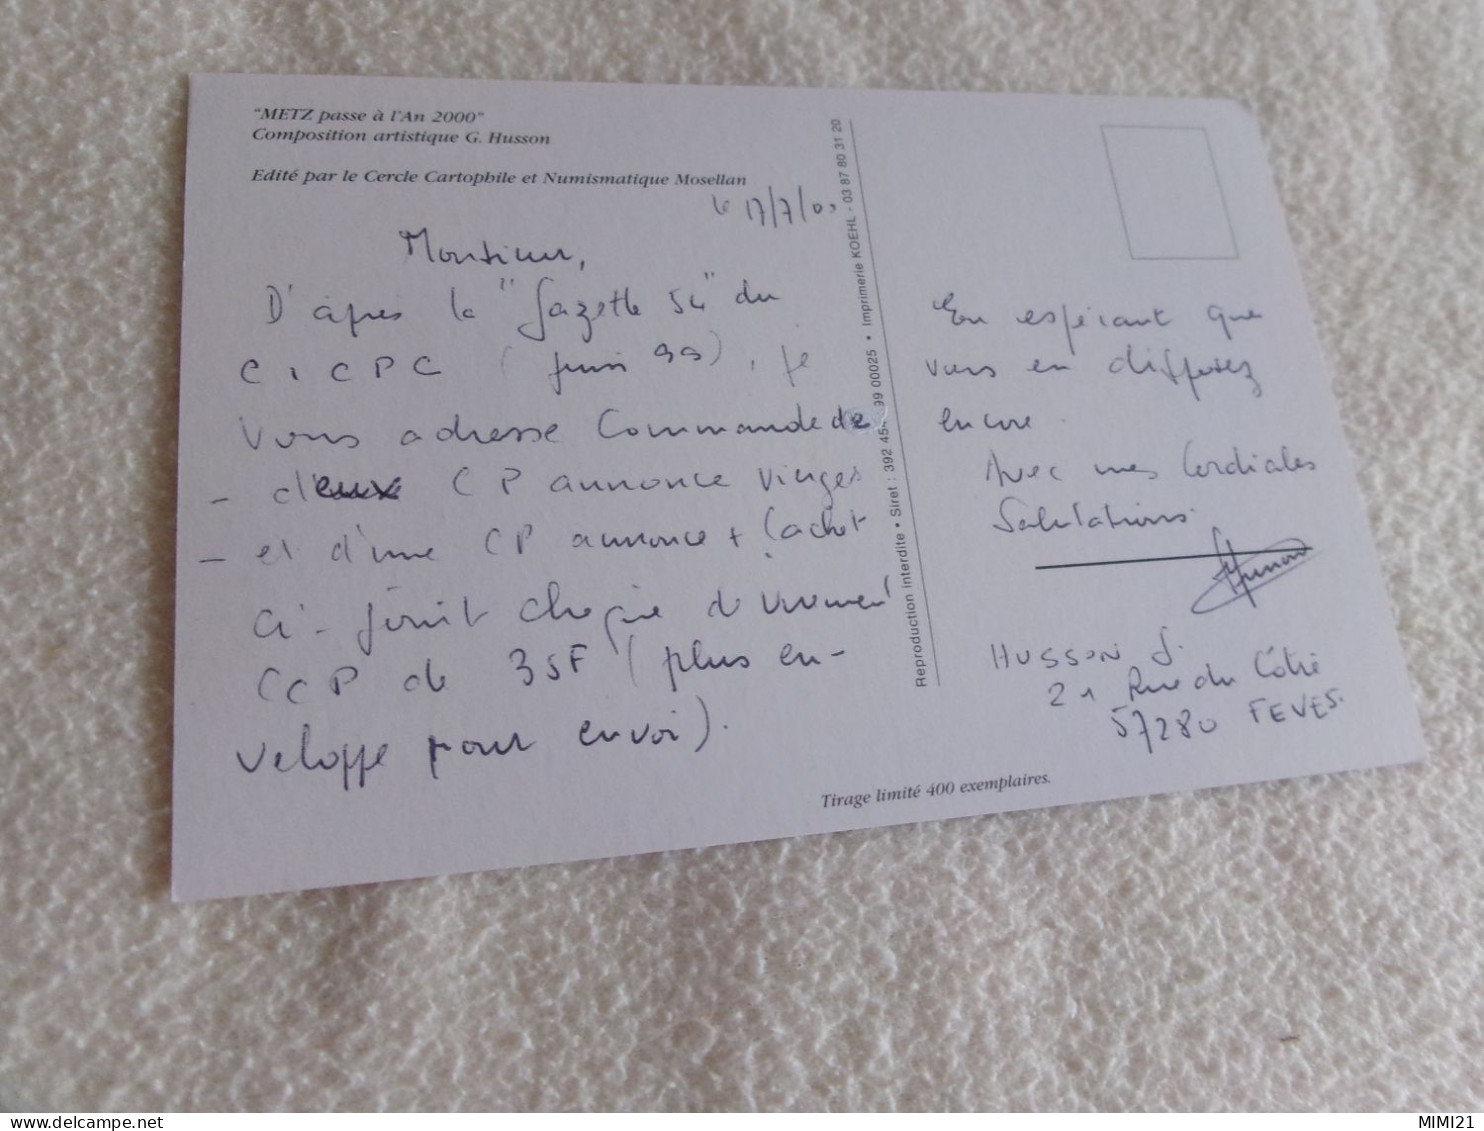 "METZ passe à l'An 2000"
Composition artistique G. Husson
Edité par le Cercle Cartophile et Numismatique Mosellan
le 17/7/
Monsieur,
D'après la "Gazette 54" du
C.I.C.P.C (juin 99), je
vous adresse commande de
- deux CP annonce vierges
- et d'une CP annonce + Cachet
Ci-joint chèque de virement
CCP de 35F (plus en-
veloppe pour envoi).
Reproduction interdite • Siret : 392 45 99 00025 • Imprimerie KOEHL - 03 87 80 31 20
En espérant que
vous en diffusez
encore.
Avec mes Cordiales
Salutations.
HUSSON G.
21 Rue du Côtré
57280 FEVES.
Tirage limité 400 exemplaires.
MIMI21